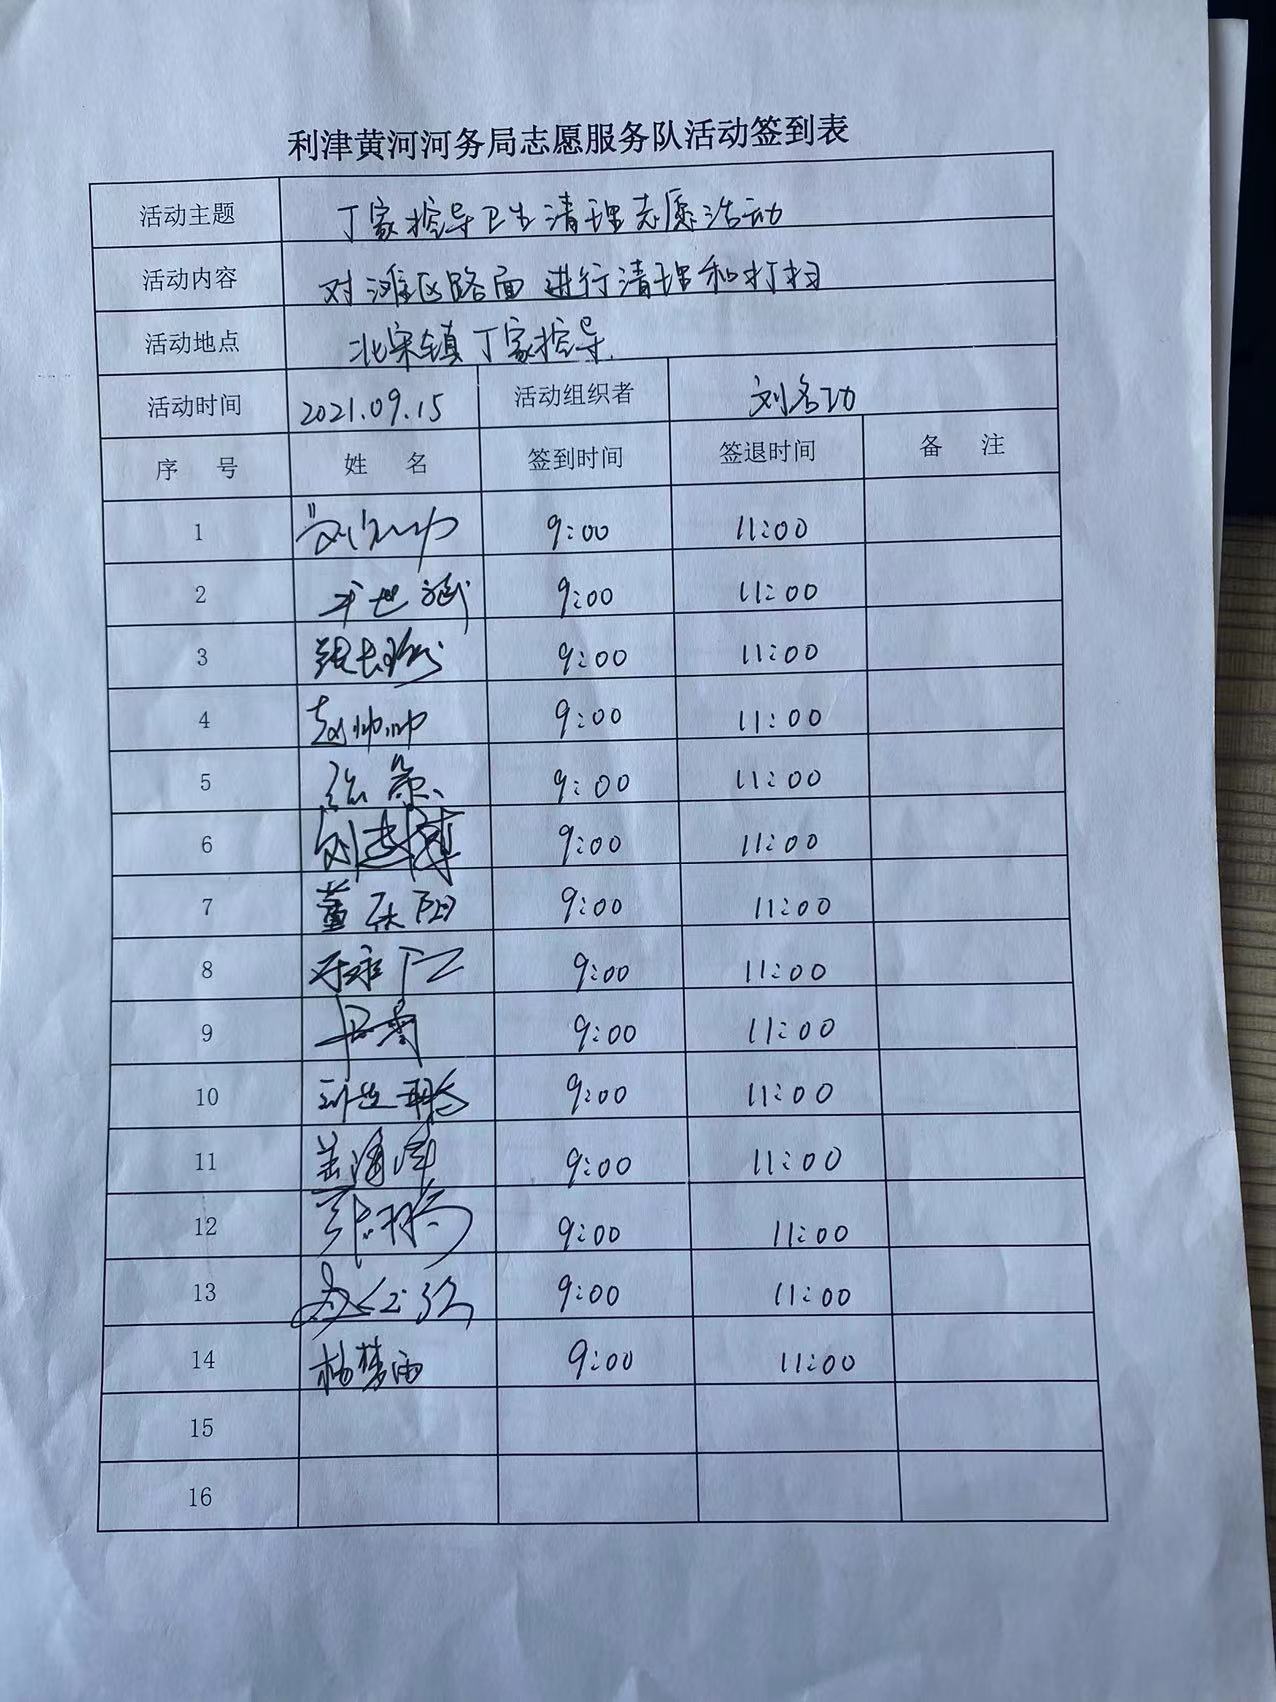 利津黄河河务局志愿服务队活动签到表
活动主题 丁家控导卫生清理志愿活动
活动内容 对滩区路面进行清理和打扫
活动地点 北宋镇丁家控导.
活动时间 2021.09.15 活动组织者 刘名功
序 号 姓 名 签到时间 签退时间 备 注
1 9:00 11:00
2 9:00 11:00
3 9:00 11:00
4 赵帅帅 9:00 11:00
5 9:00 11:00
6 9:00 11:00
7 董庆阳 9:00 11:00
8 9:00 11:00
9 9:00 11:00
10 9:00 11:00
11 盖海峰 9:00 11:00
12 9:00 11:00
13 9:00 11:00
14 杨梦雨 9:00 11:00
15
16